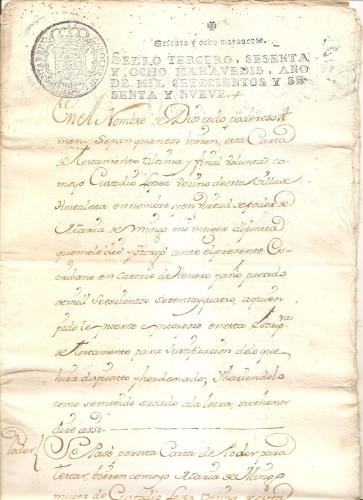 Sesenta y ocho maravedis.
SELLO TERCERO, SESENTA
Y OCHO MARAVEDIS, AÑO
DE MIL SETECIENTOS Y SE-
SENTA Y NUEVE.
En el Nombre de Dios todo poderoso A
men. Sepan quantos vieren, esta Carta
de Testamento Ultima y final voluntad co
mo yo Custodio Lopez vezino de esta Villa de
Hortaleza en nombre y en virtud de poder de
Maria de Mingo mi muger difunta
que me le dio y otorgo ante el presente Es
cribano en Catorce de Henero y año pasado
de mil Setezientos sesenta y quatro, a quien
pido le inserte e incorpore en esta Escrip.ra
de Testamento para Justificazion de lo que
hira dispuesto y hordenado; y haziendolo
como se me pide sacado a la letra, su thenor
dize assi
Poder
Se Pase por esta Carta de Poder para
Testar, vieren como yo Maria de Ming
muger de Custodio Lopez